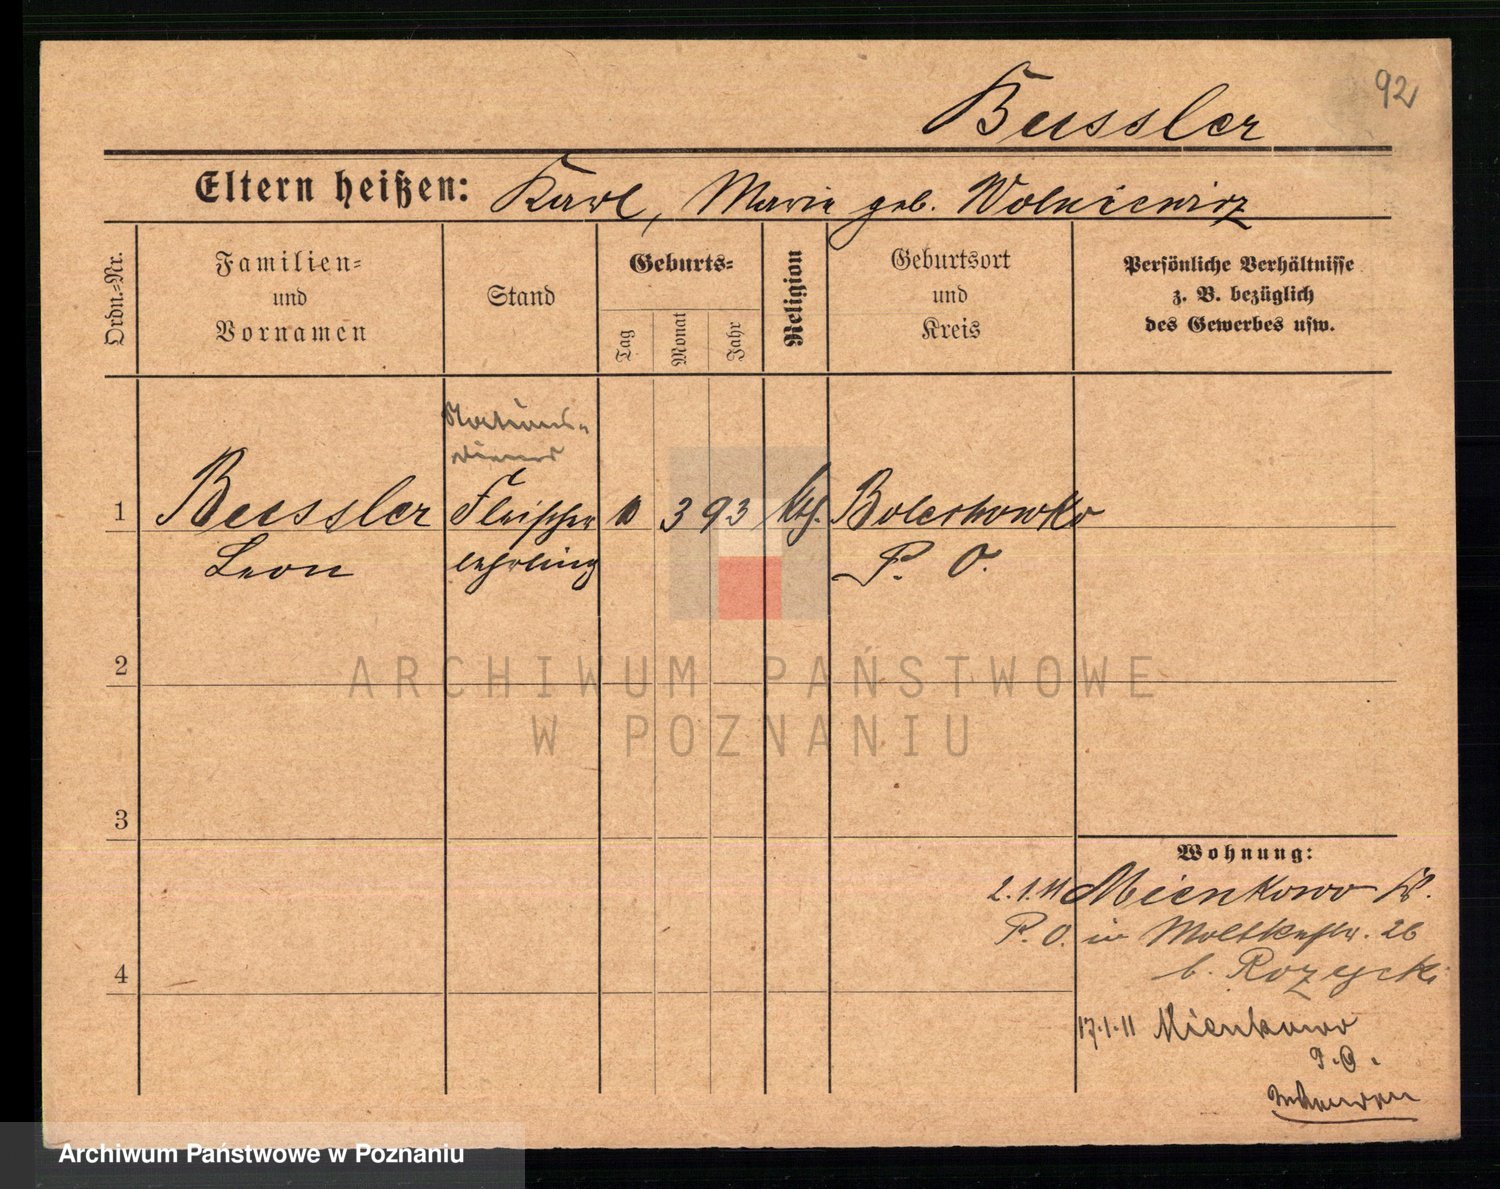 92
Beussler
Eltern heißen: Karl, Marie geb. Wolniewicz
Ordn.-Nr.
Familien-
und
Vornamen
Stand
Geburts-
Tag
Monat
Jahr
Religion
Geburtsort
und
Kreis
Persönliche Verhältnisse
z. B. bezüglich
des Gewerbes usw.
1 Beussler Fleischer 3 93 kth. Bolechowko
Leon lehrling P. O.
2
ARCHIWUM PAŃSTWOWE
W POZNANIU
3
Wohnung:
2.1.11 Mienkowo
P. O. in Moltkestr. 26
b. Rozycki
4
17.1.11 Mienkowo
P. O.
Archiwum Państwowe w Poznaniu